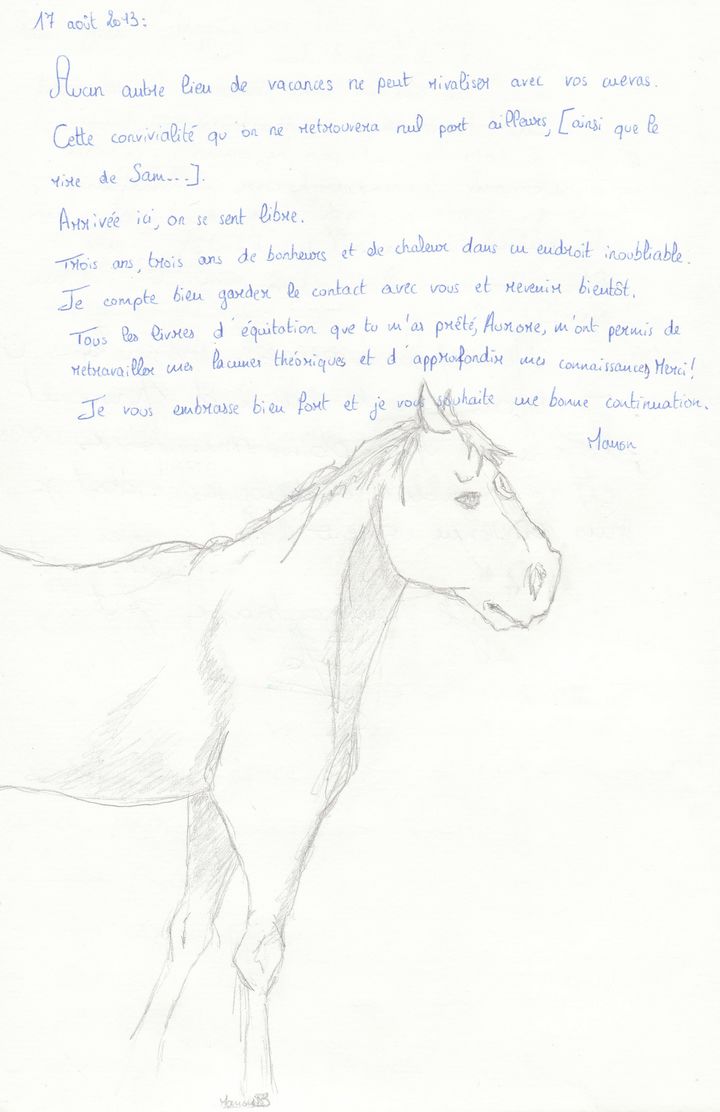 17 août 2013:
Aucun autre lieu de vacances ne peut rivaliser avec vos cuevas.
Cette convivialité qu'on ne retrouvera nul part ailleurs, [ainsi que le
rire de Sam...].
Arrivée ici, on se sent libre.
Trois ans, trois ans de bonheurs et de chaleur dans un endroit inoubliable.
Je compte bien garder le contact avec vous et revenir bientôt.
Tous les livres d'équitation que tu m'as prêté, Aurore, m'ont permis de
retravailler mes lacunes théoriques et d'approfondir mes connaissances, Merci!
Je vous embrasse bien fort et je vous souhaite une bonne continuation.
Manon
Manon